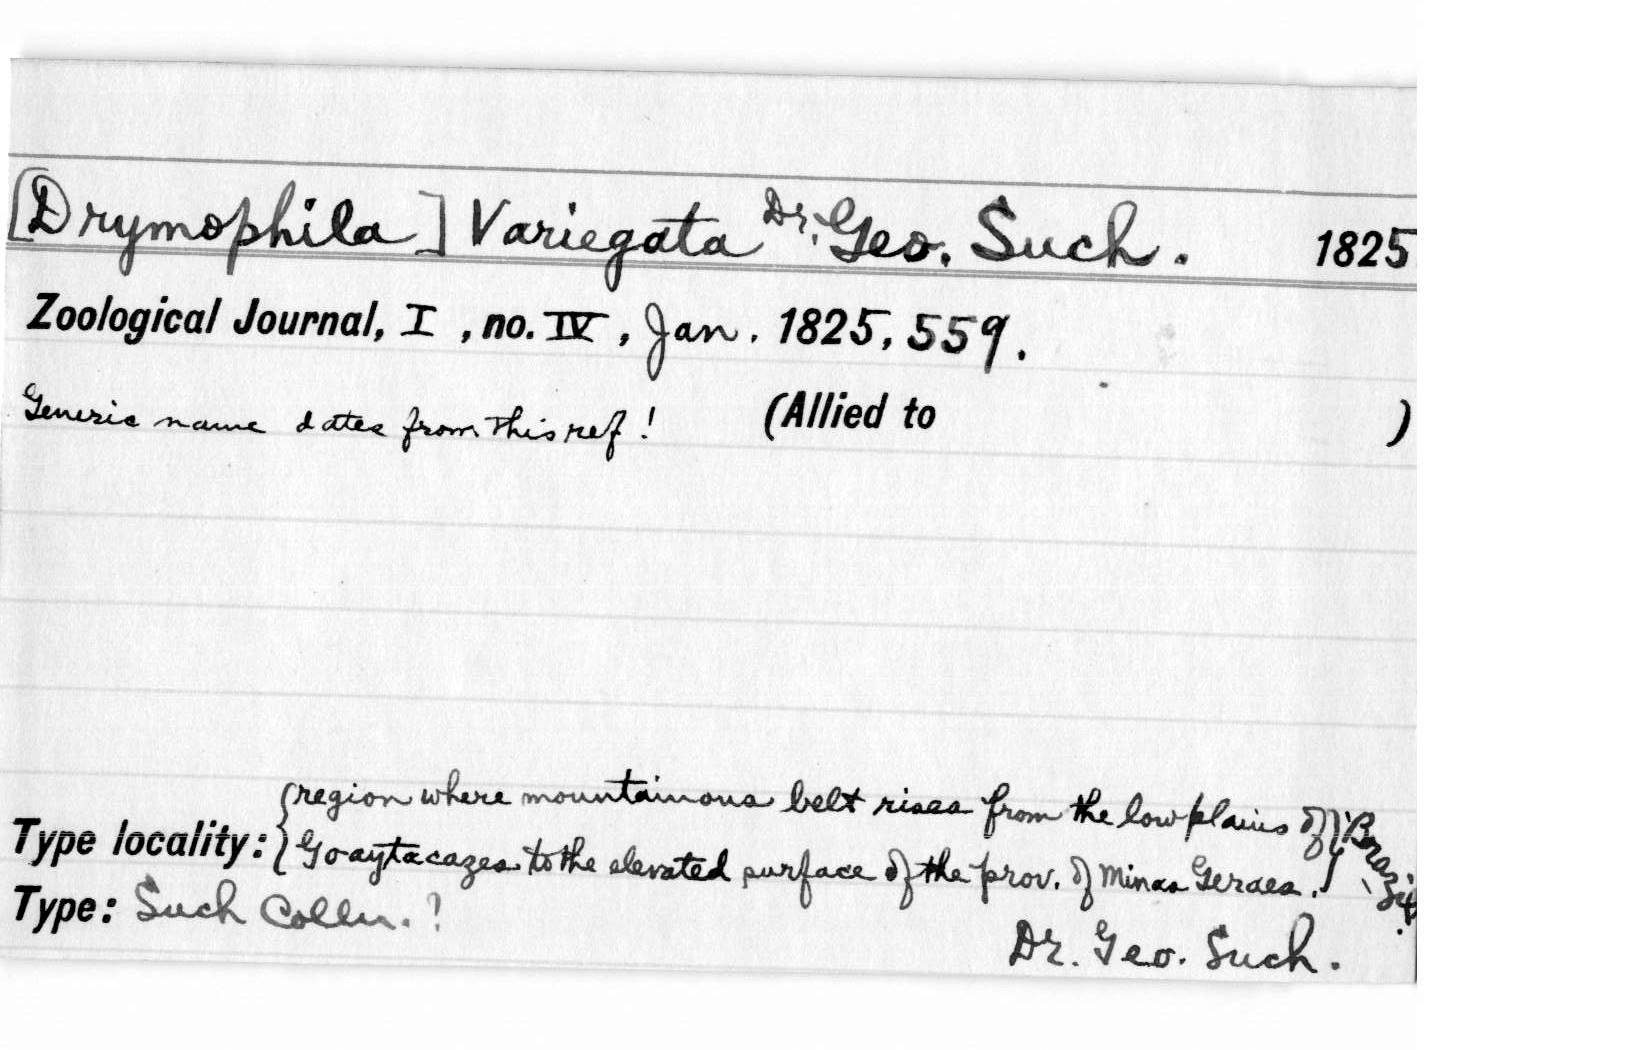 [Drymophila] Variegata Dr. Geo. Such. 1825
Zoological Journal, I, no. IV, Jan. 1825, 559.
Generic name dates from this ref! (Allied to )
region where mountainous belt rises from the low plains of
Type locality: { Goaytacazes to the elevated surface of the prov. of Minas Geraes. } Brazil.
Type: Such Colln.?
Dr. Geo. Such.